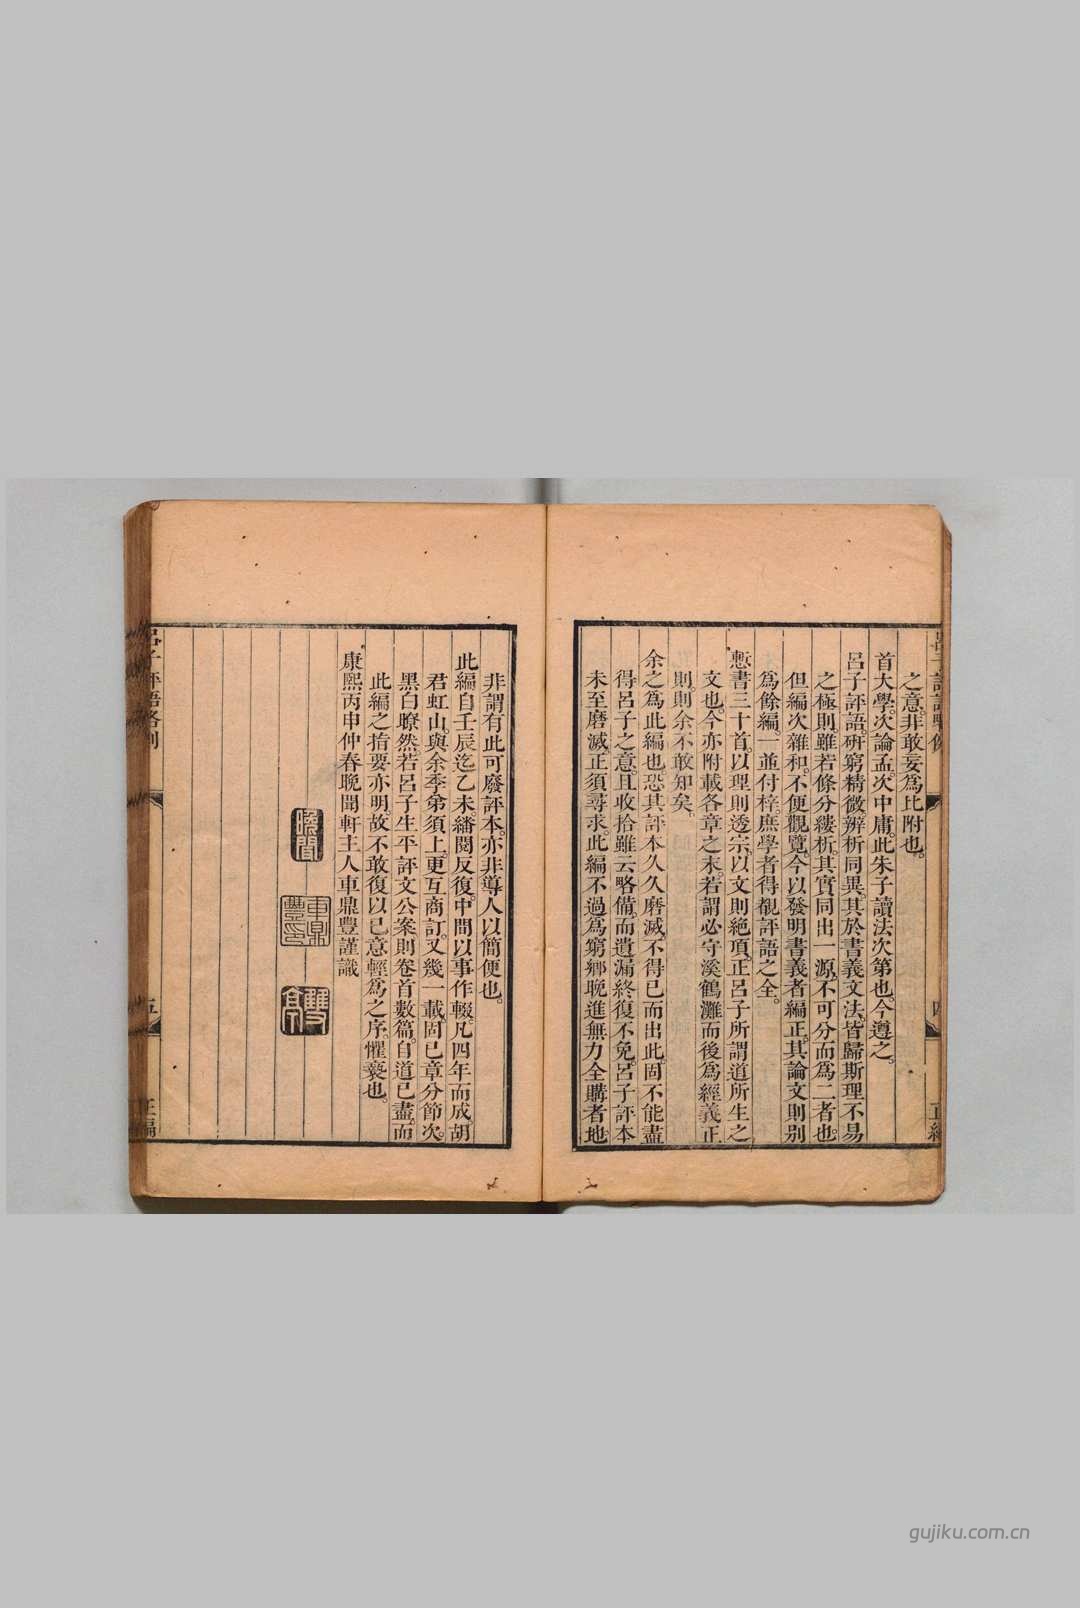 之意非敢妄爲比附也。
首大學。次論孟。次中庸。此朱子讀法次第也。今遵之。
呂子評語。研窮精微。辨析同異。其於書義文法。皆歸斯理不易
之極則。雖若條分縷析。其實同出一源。不可分而爲二者也。
但編次雜和。不便觀覽。今以發明書義者編正。其論文則别
爲餘編。一並付梓。庶學者得覩評語之全。
慙書三十首。以理則透宗。以文則絶項。正呂子所謂道所生之
文也。今亦附載各章之末。若謂必守溪鶴灘而後爲經義正
則。則余不敢知矣。
余之爲此編也。恐其評本久久磨滅。不得已而出此。固不能盡
得呂子之意。且收拾雖云略備。而遺漏終復不免。呂子評本
未至磨滅。正須尋求。此編不過爲窮鄉晚進無力全購者地。
四
正編
非謂有此可廢評本。亦非導人以簡便也。
此編自壬辰迄乙未。繙閱反復。中間以事作輟。凡四年而成。胡
君虹山。與余季弟須上。更互商訂。又幾一載。固已章分節次。
黑白瞭然。若呂子生平評文公案。則卷首數篇。自道已盡。而
此編之指要亦明。故不敢復以已意輕爲之序。懼褻也。
康熙丙申仲春晚聞軒主人車鼎豐謹識
晚聞
車鼎豐印
雙亭
呂子評語略例
五
正編
gujiku.com.cn